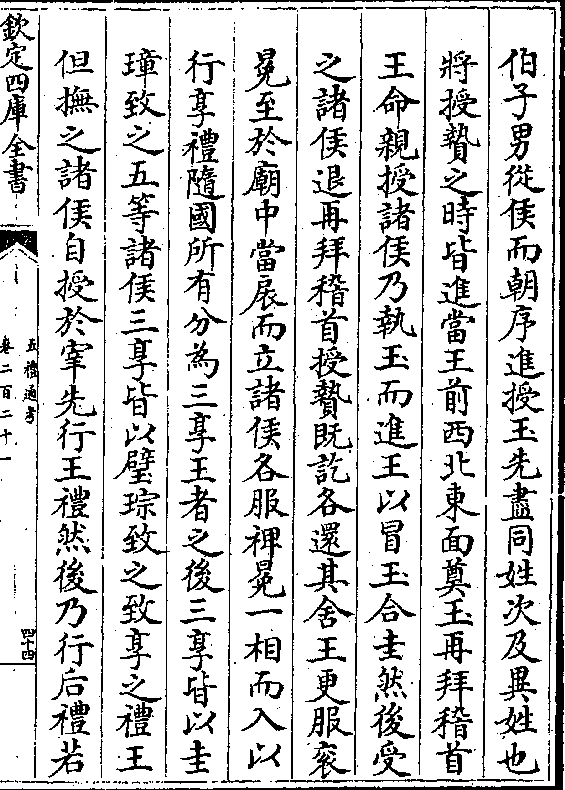 伯子男從侯而朝序進授玉先盡同姓次及異姓也
將授贄之時皆進當王前西北東面奠玉再拜稽首
王命親授諸侯乃執玉而進王以冒玉合圭然後受
之諸侯退再拜稽首授贄既訖各還其舍王更服衮
冕至於廟中當扆而立諸侯各服裨冕一相而入以
行享禮隨國所有分為三享王者之後三享皆以圭
璋致之五等諸侯三享皆以璧琮致之致享之禮王
但撫之諸侯自授於宰先行王禮然後乃行后禮若
欽定四庫全書
五禮通考
卷二百二十一
四十四